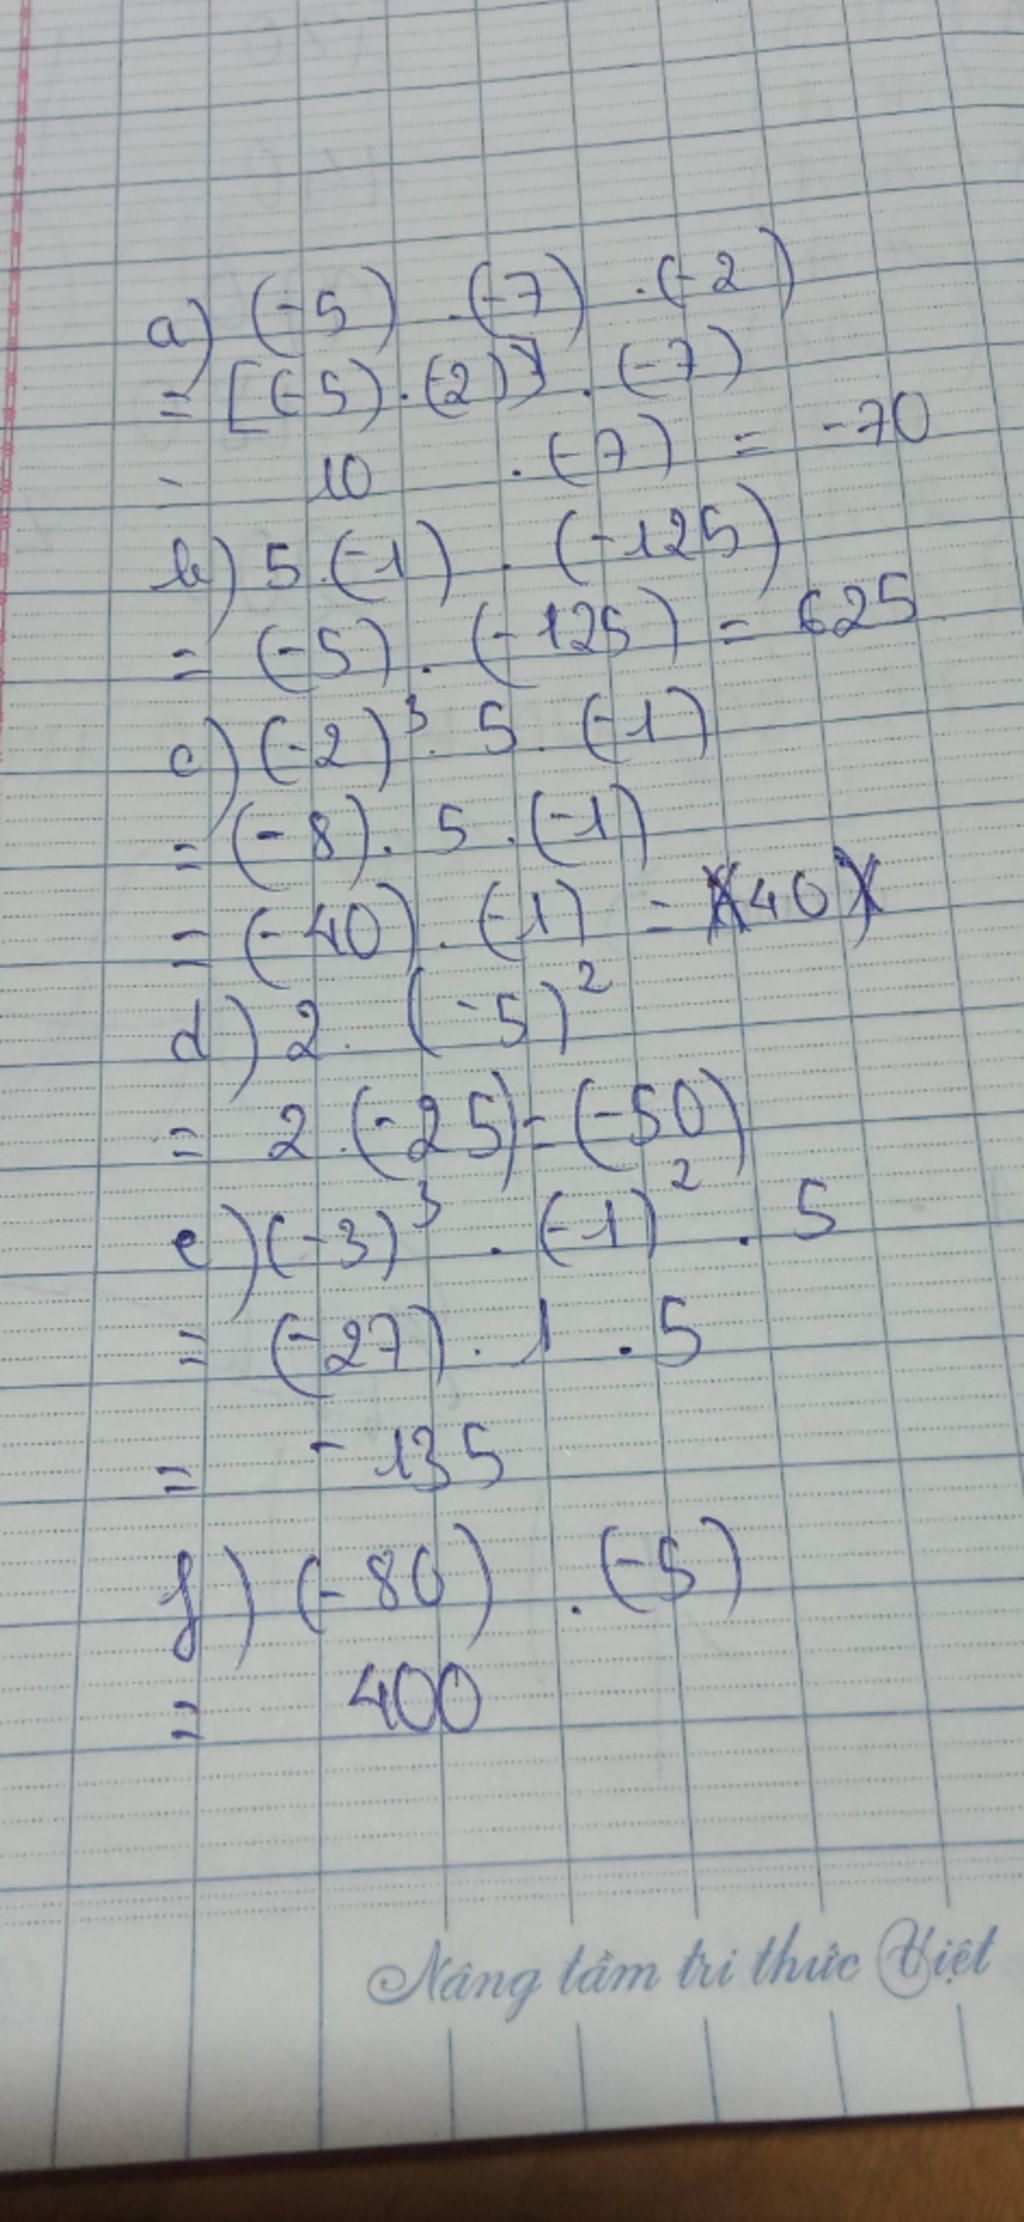 a) (-5) . (-7) . (-2)
= [(-5) . (-2)] . (-7)
= 10 . (-7) = -70
b) 5 . (-1) . (-125)
= (-5) . (-125) = 625
c) (-2)³ . 5 . (-1)
= (-8) . 5 . (-1)
= (-40) . (-1) = 40
d) 2 . (-5)²
= 2 . (-25) = (-50)
e) (-3)³ . (-1)² . 5
= (-27) . 1 . 5
= -135
f) (-80) . (-5)
= 400
Nâng tầm tri thức Việt